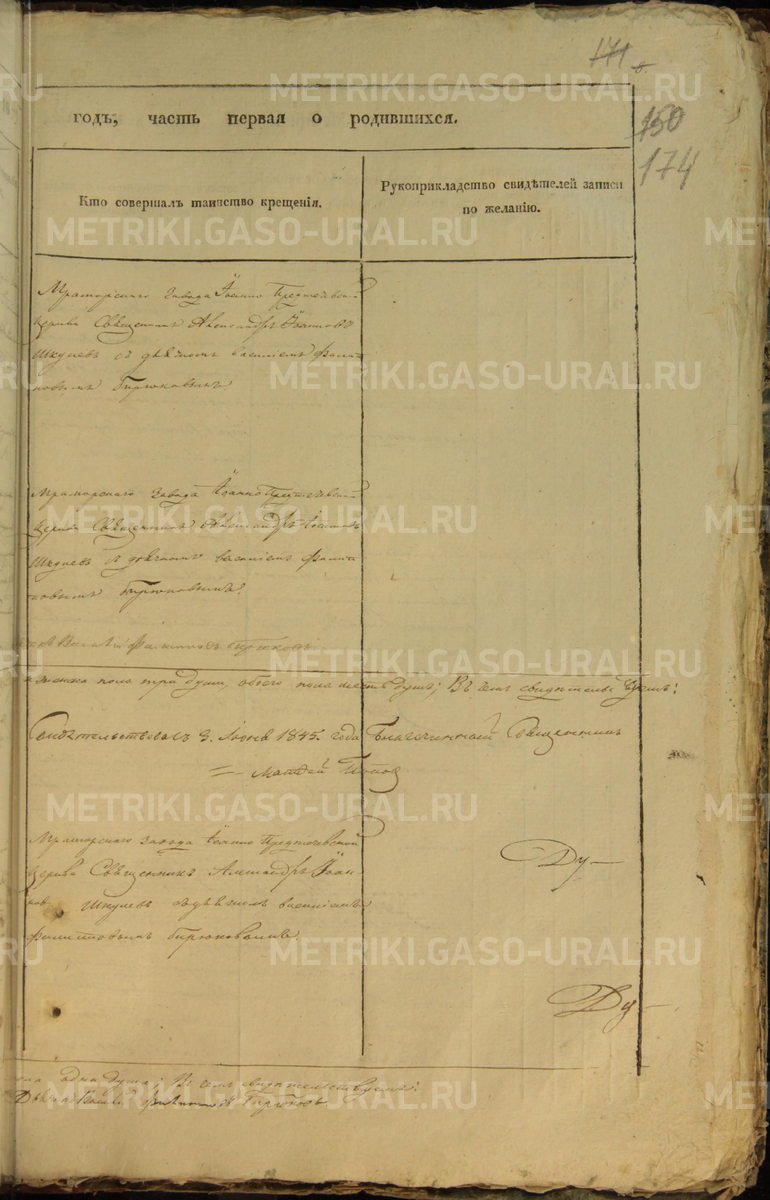 171
об.
150
174
годъ, часть первая о родившихся.
Кто совершалъ таинство крещенія.
Рукоприкладство свидѣтелей записи
по желанію.
Мраморскаго завода Іоанно Предтечевской
церкви Священникъ Александръ Іоанновъ
Шкулевъ съ дьячкомъ Василіемъ Филип-
повымъ Бирюковымъ.
Мраморскаго завода Іоанно Предтечевской
церкви Священникъ Александръ Іоанновъ
Шкулевъ съ дьячкомъ Василіемъ Филип-
повымъ Бирюковымъ.
Василій Филипповъ Бирюковъ
женска пола три души, обоего пола шесть душъ; Въ чемъ свидѣтельствуемъ:
Свидѣтельствовалъ 9. Іюня 1845. года Благочинный Священникъ
Матфей Поповъ
Мраморскаго завода Іоанно Предтечевской
церкви Священникъ Александръ Іоан-
новъ Шкулевъ съ дьячкомъ Василіемъ
Филипповымъ Бирюковымъ.
Ду-
Ду-
одна душа; Въ чемъ свидѣтельствуемъ:
Дьячекъ Василій Филипповъ Бирюковъ
METRIKI.GASO-URAL.RU